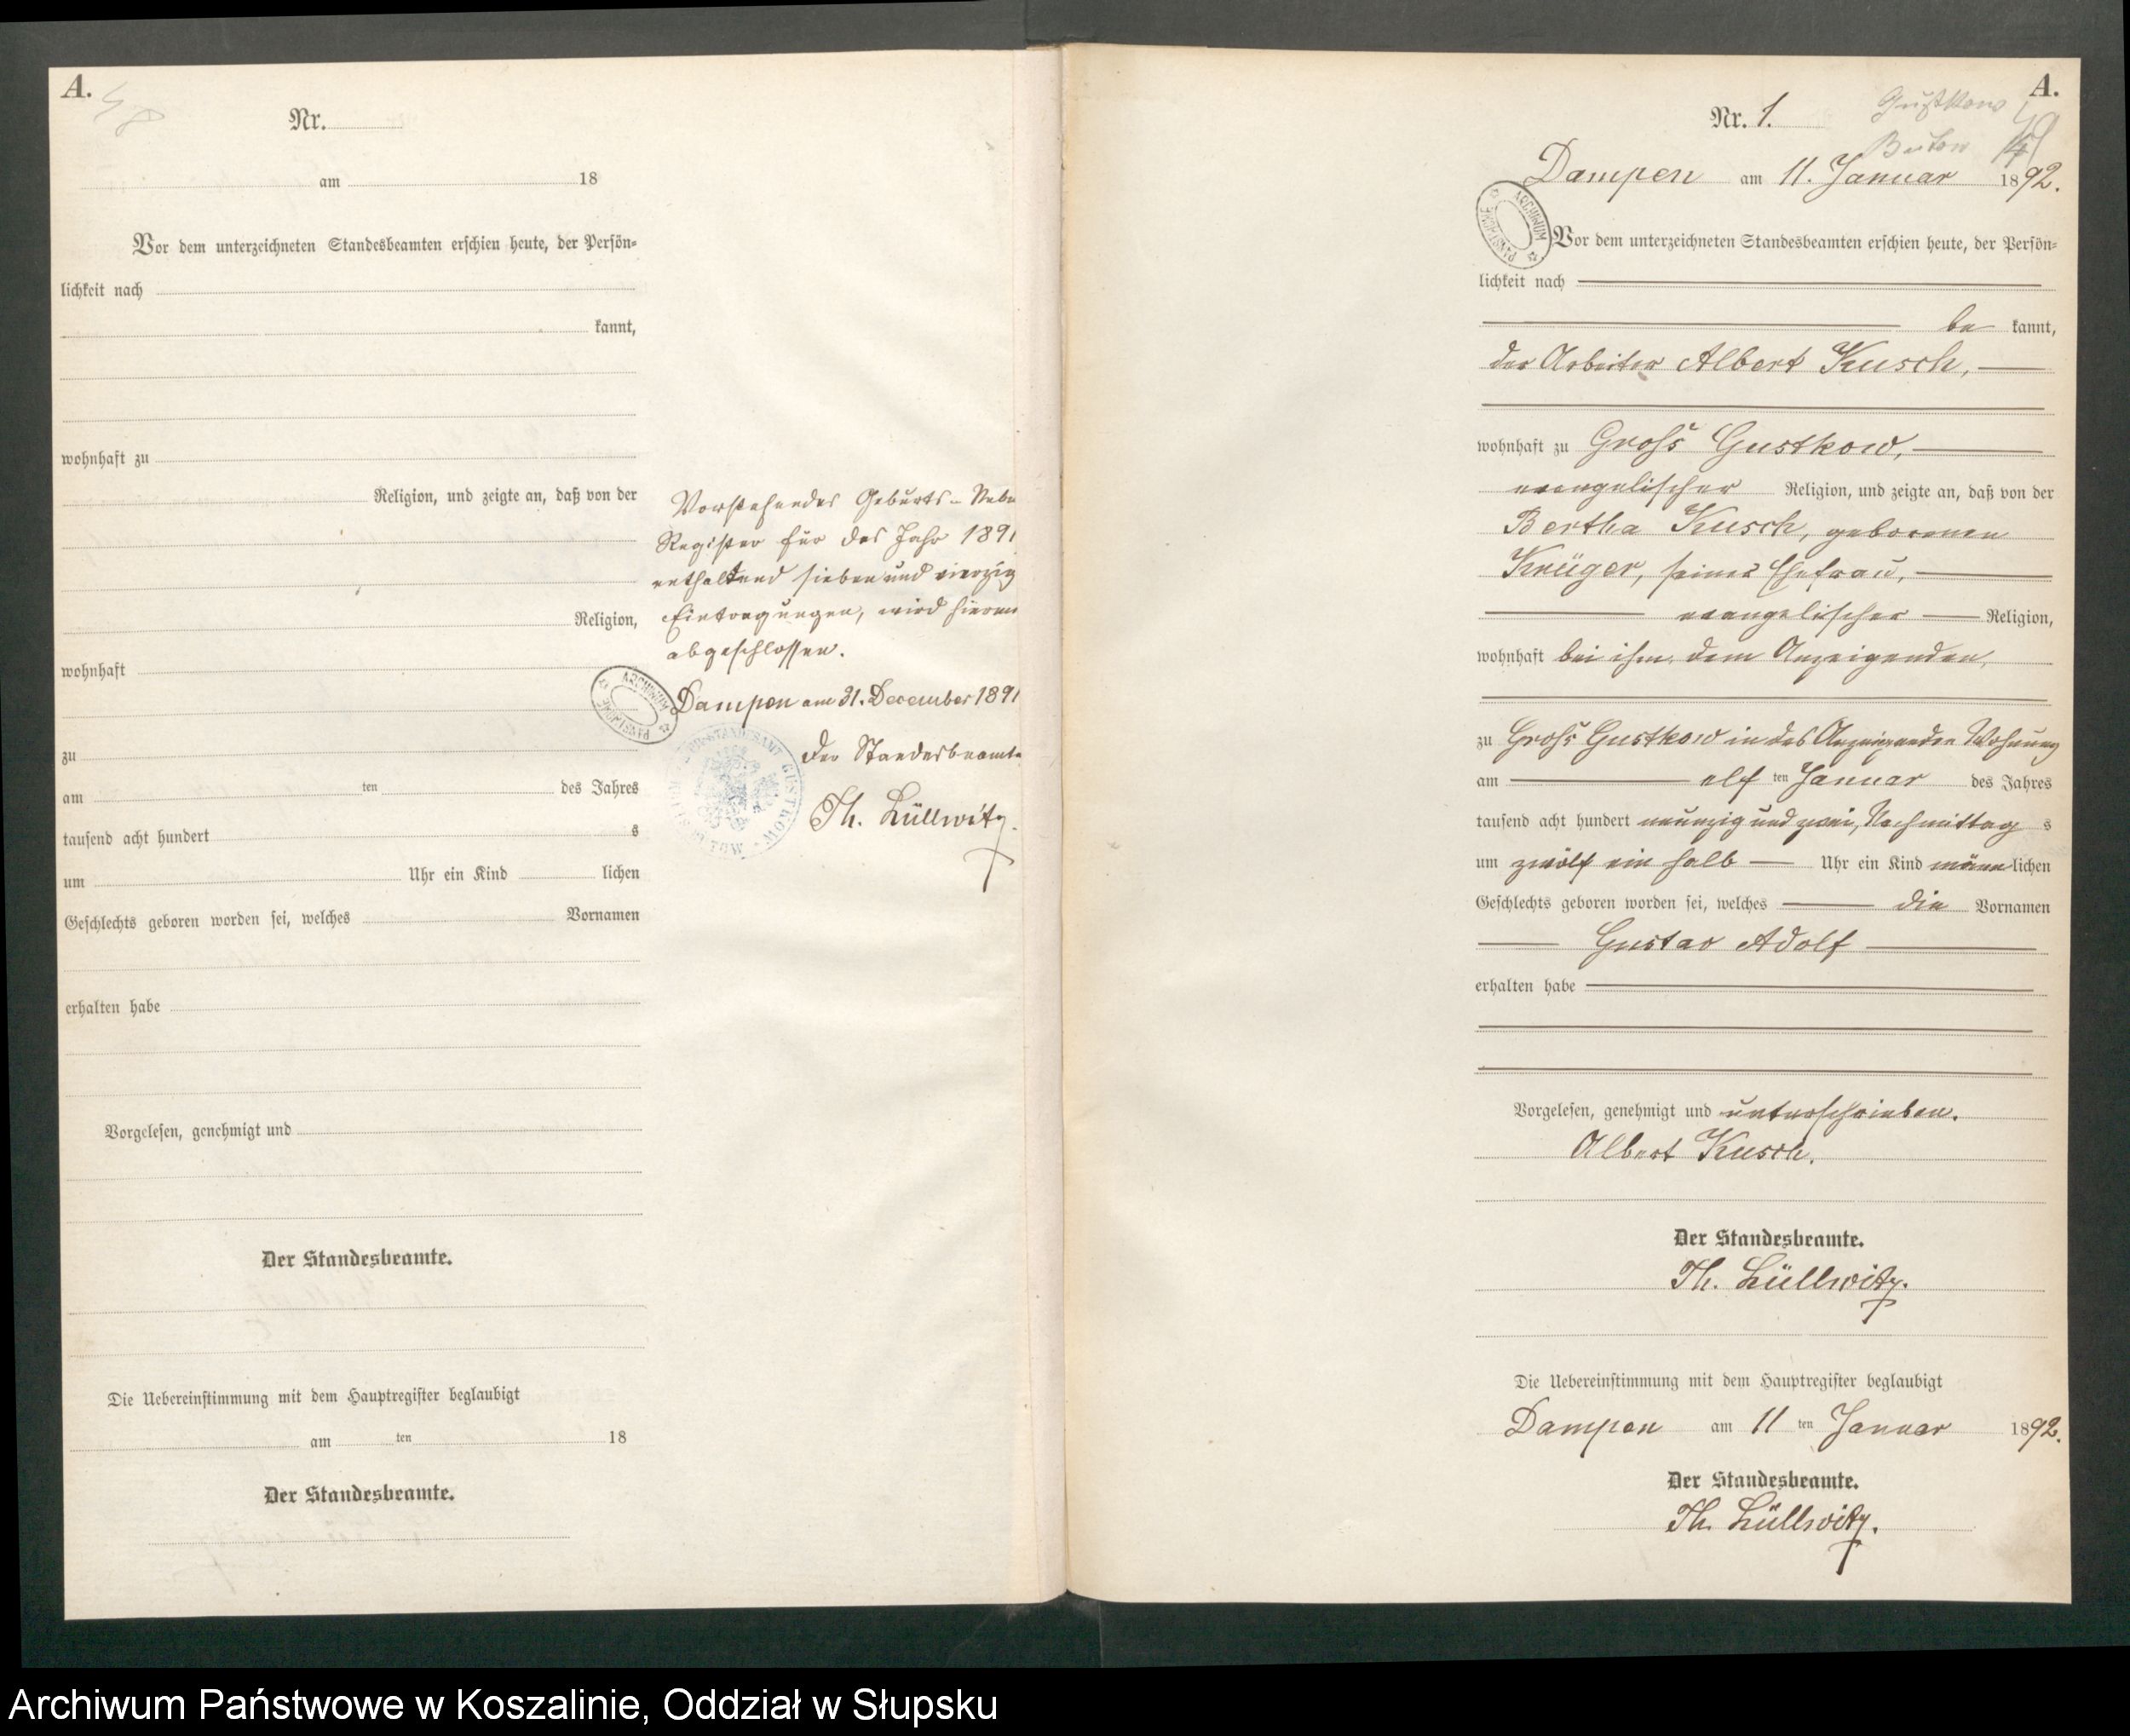 A.
Nr.
am 18
Vor dem unterzeichneten Standesbeamten erschien heute, der Persön-
lichkeit nach
kannt,
wohnhaft zu
Religion, und zeigte an, daß von der
Religion,
wohnhaft
zu
am ten des Jahres
tausend acht hundert s
um Uhr ein Kind lichen
Geschlechts geboren worden sei, welches Vornamen
erhalten habe
Vorgelesen, genehmigt und
Der Standesbeamte.
Die Uebereinstimmung mit dem Hauptregister beglaubigt
am ten 18
Der Standesbeamte.
Vorstehendes Geburts-Nebe
Register für das Jahr 1891
enthaltend sieben und vierzig
Eintragungen, wird hierm
abgeschlossen.
Dampen am 31. December 1891
ARCHIWUM PAŃSTWOWE
Der Standesbeamte
Th. Lüllwitz.
A.
Nr. 1.
Gustkow
Butow
Dampen am 11. Januar 1892.
ARCHIWUM PAŃSTWOWE
Vor dem unterzeichneten Standesbeamten erschien heute, der Persön-
lichkeit nach
be kannt,
der Arbeiter Albert Kusch,
wohnhaft zu Groß Gustkow,
evangelischer Religion, und zeigte an, daß von der
Bertha Kusch, geborenen
Krüger, seiner Ehefrau,
evangelischer Religion,
wohnhaft bei ihm, dem Anzeigenden,
zu Groß Gustkow in des Anzeigenden Wohnung
am elf ten Januar des Jahres
tausend acht hundert neunzig und zwei, Nachmittag s
um zwölf ein halb Uhr ein Kind männlichen
Geschlechts geboren worden sei, welches die Vornamen
Gustav Adolf
erhalten habe
Vorgelesen, genehmigt und unterschrieben.
Albert Kusch.
Der Standesbeamte.
Th. Lüllwitz.
Die Uebereinstimmung mit dem Hauptregister beglaubigt
Dampen am 11 ten Januar 1892.
Der Standesbeamte.
Th. Lüllwitz.
Archiwum Państwowe w Koszalinie, Oddział w Słupsku